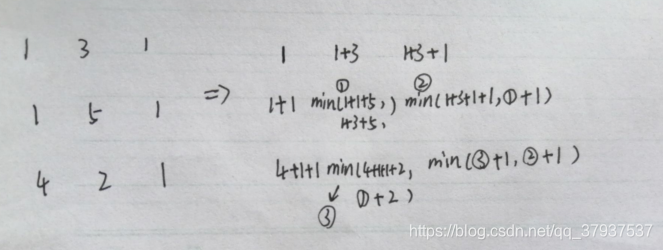 1 3 1 1 1+3 1+3+1
① ②
1 5 1 => 1+1 min(1+1+5, ) min(1+3+1+1,①+1)
1+3+5,
4 2 1 4+1+1 min(4+1+1+2, min(③+1,②+1)
↙ ①+2)
③
https://blog.csdn.net/qq_37937537